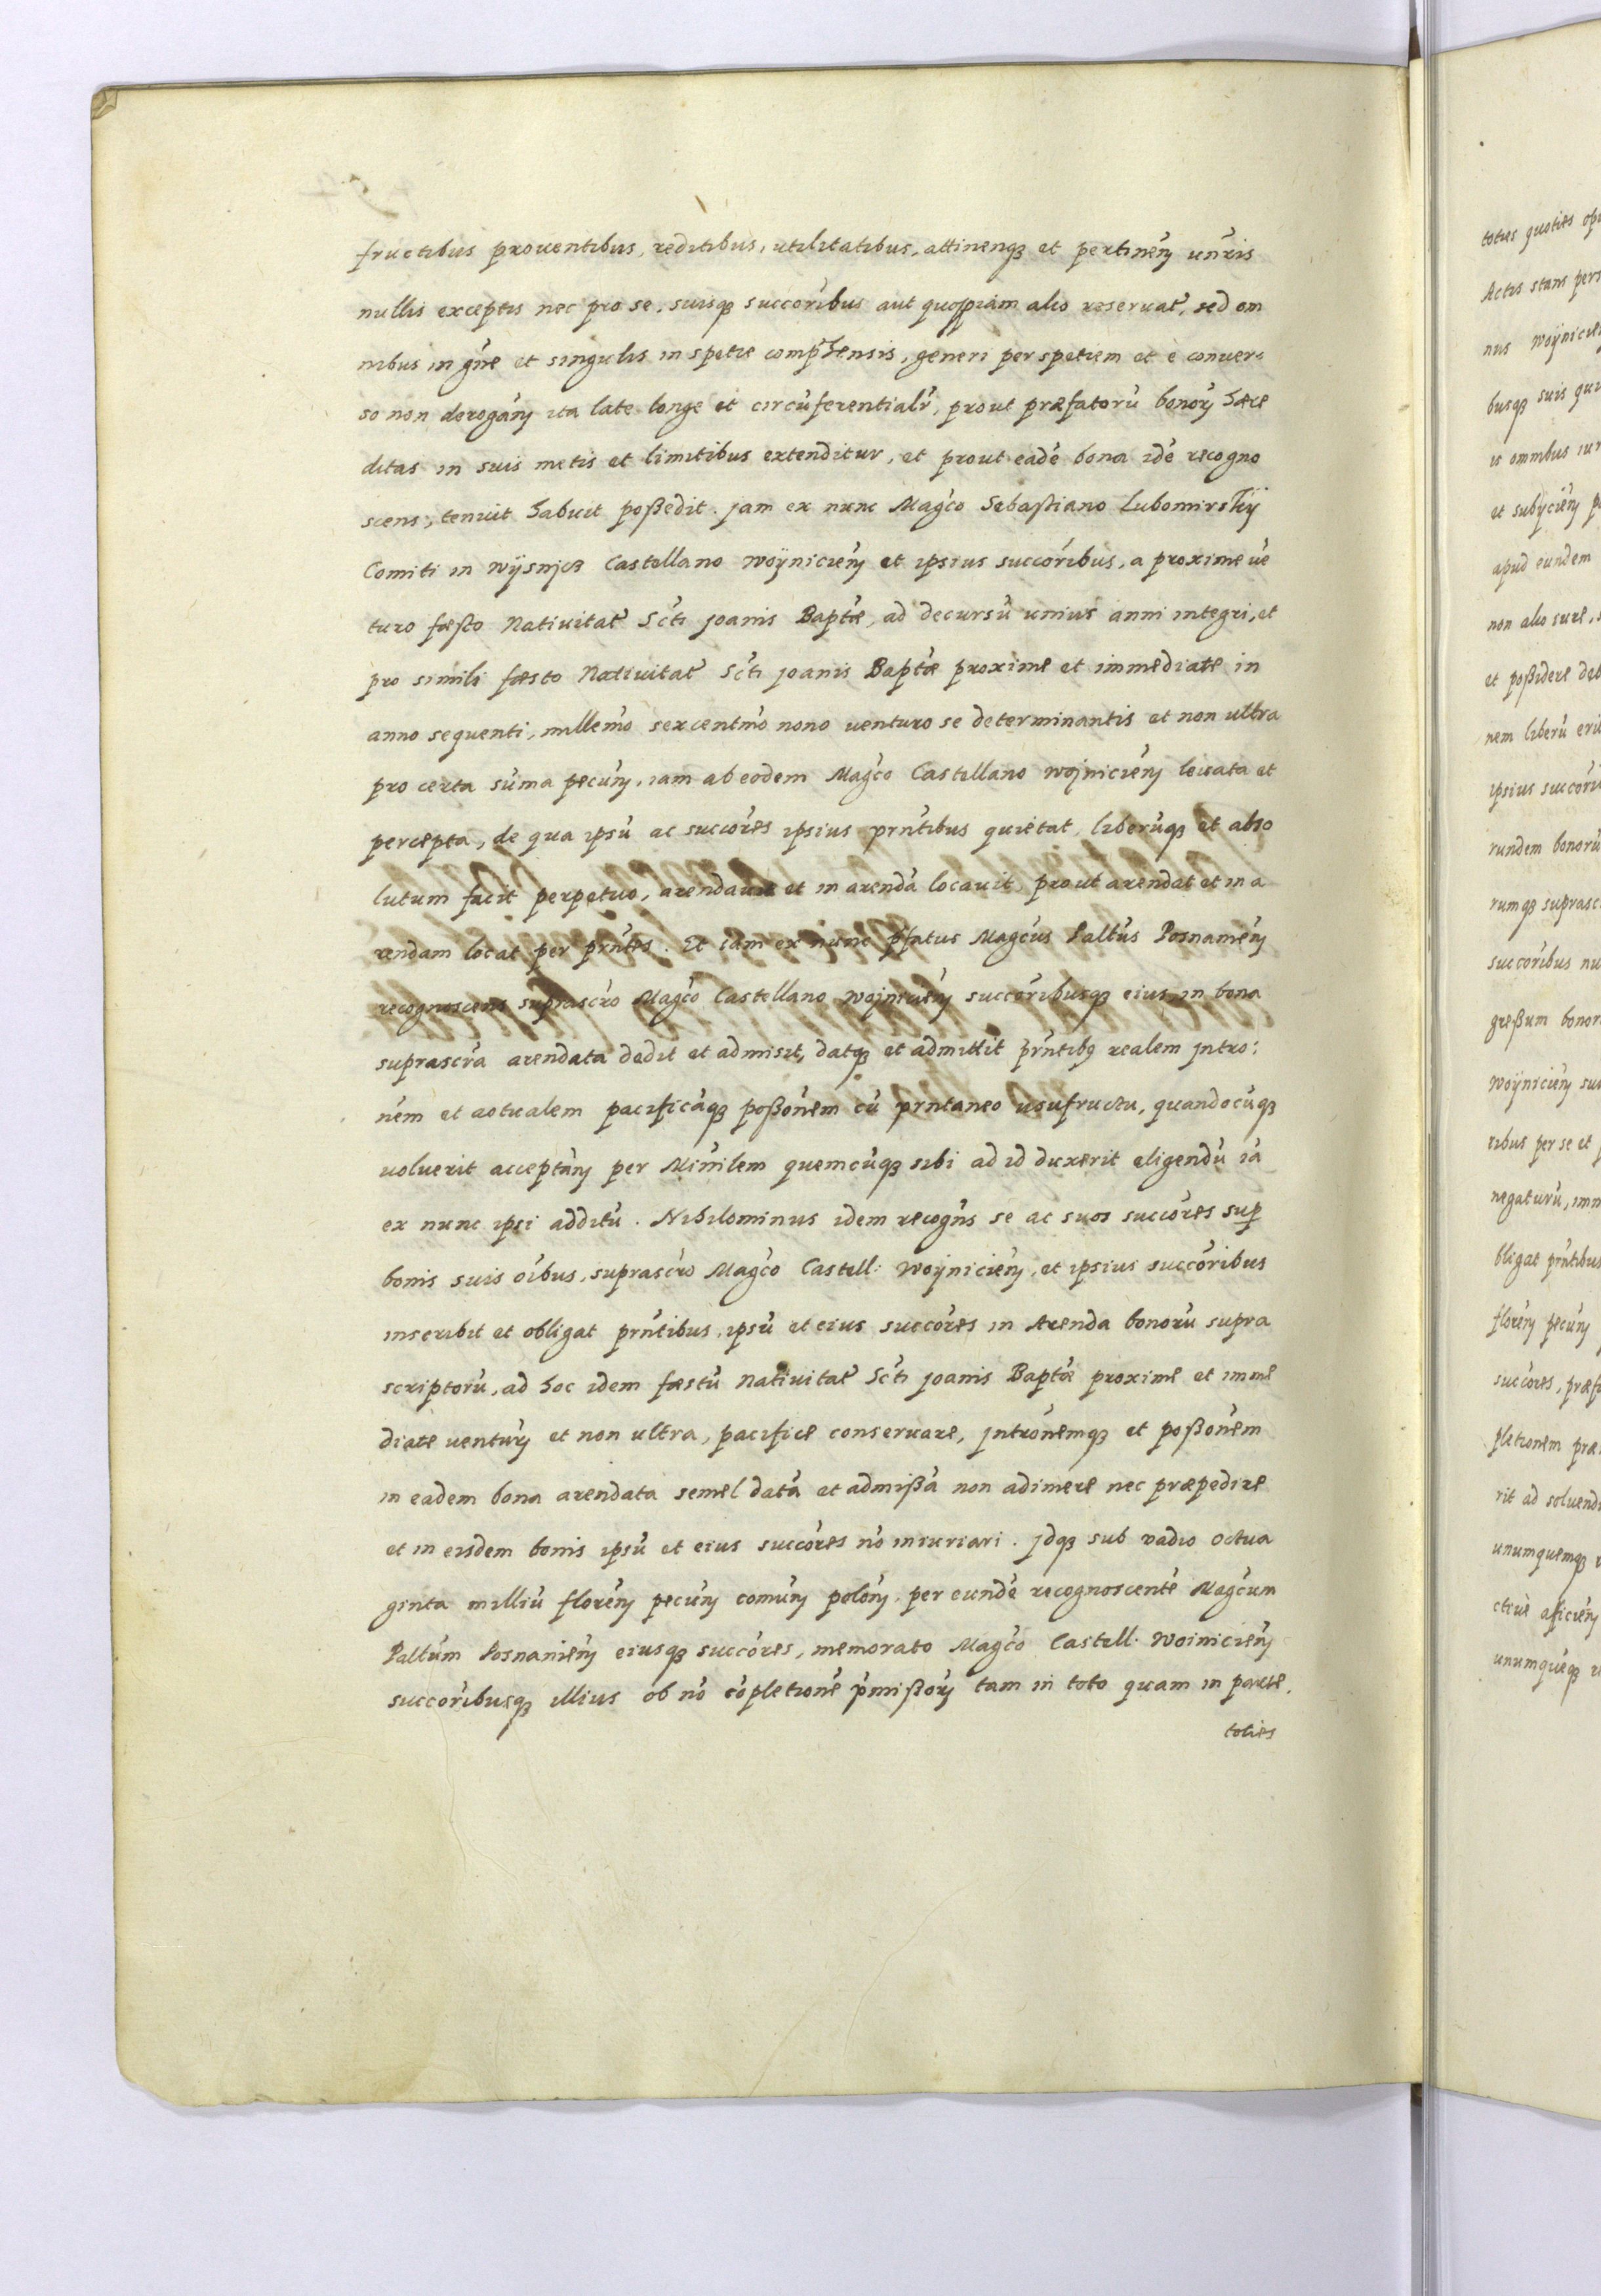 fructibus prouentibus, reditibus, utilitatibus, attinenq₃ et pertineń uńris
nullis exceptis nec pro se, suisq₃ succoribus aut quospiam alio reseruat̃, sed om
nibus in gńe et singulis in spetie comp̃hensis, generi per spetiem et è conuer-
so non derogań ita late longe et circũferentialr̃, prout præfatorũ bonoŕ hære
ditas in suis metis et limitibus extenditur, et prout eadẽ bona idẽ recogno
scens, tenuit habuit poßedit. jam ex nunc Mag̃co Sebastiano Lubomirskÿ
Comiti in Wÿsnicz Castellano Woÿnicień et ipsius succoribus, a proxime uẽ
turo fæsto Natiuitat̃ Sc̃ti joanis Bapt̃æ, ad decursũ unius anni integri, et
pro simili fæsto Natiuitat̃ Sc̃ti joanis Bapt̃æ proxime et immediate in
anno sequenti, millem̃o sexcentm̃o nono uenturo se determinantis et non ultra
pro certa sũma pecuń, iam ab eodem Mag̃co Castellano Wojnicień leuata et
percepta, de qua ipsũ ac succores ipsius prñtibus quietat, liberũq₃ et abso
lutum facit perpetuo, arendauit et in arendã locauit, prout arendat et in a
rendam locat per prñtes. Et iam ex nunc p̃fatus Magc̃us Palt̃us Posnanień
recognoscens suprascr̃o Mag̃co Castellano Wojnicień succoribusq₃ eius, in bona
suprascr̃a arendata dedit et admisit, datq₃ et admittit prñtibq realem jntro:
nẽm et actualem pacificãq₃ poßonẽm cũ prñtaneo usufructu, quandocũq₃
uoluerit acceptań per Minĩlem quemcũq₃ sibi ad id duxerit eligendũ iã
ex nunc ipsi additũ. Nihilominus idem recogñs se ac suos succores sup̃
bonis suis oĩbus, suprascr̃o Mag̃co Castell: Woÿnicień, et ipsius succoribus
inscribit et obligat prñtibus, ipsũ et eius succores in Arenda bonorũ supra
scriptorũ, ad hoc idem fæstũ Natiuitat̃ Sc̃ti joanis Bapt̃æ proxime et imme
diate uentuŕ et non ultra, pacifice conseruare, jntronẽmq₃ et poßonẽm
in eadem bona arendata semel datã et admißã non adimere nec præpedire
et in eisdem bonis ipsũ et eius succores nõ iniuriari. jdq₃ sub vadio octua
ginta milliũ floreń pecuń comuń poloń, per eundẽ recognoscentẽ Magc̃um
Paltũm Posnanień eiusq₃ succores, memorato Mag̃co Castell: Woinicień
succoribusq₃ illius ob nõ cõpletionẽ p̃mißoŕ tam in toto quam in parte.
toties